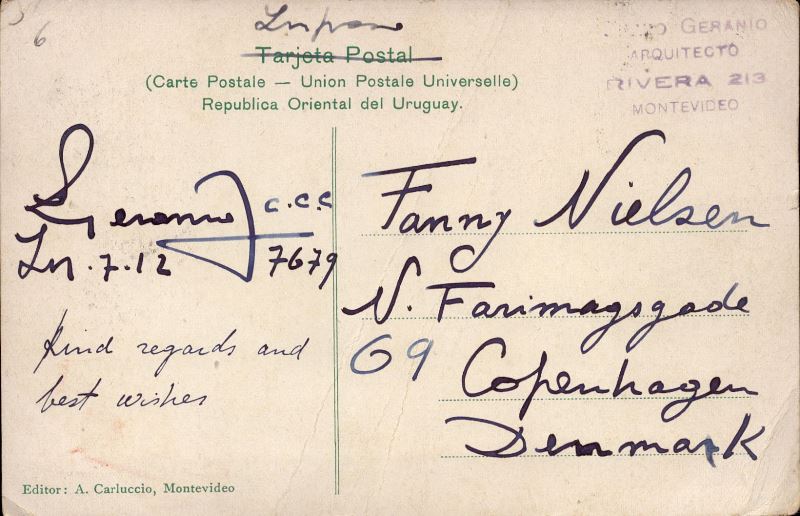 6
Tarjeta Postal
(Carte Postale — Union Postale Universelle)
Republica Oriental del Uruguay.
GERANIO
ARQUITECTO
RIVERA 213
MONTEVIDEO
Geranio c.c.c
7.12 7679
Kind regards and
best wishes
Fanny Nielsen
N. Farimagsgade
69
Copenhagen
Denmark
Editor: A. Carluccio, Montevideo